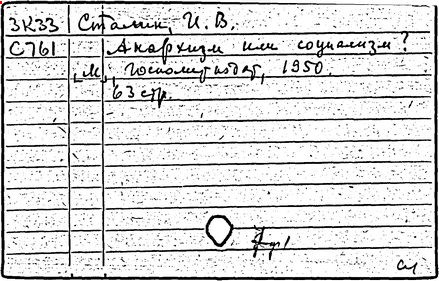 3К33 Сталин, И. В.
С761 Анархизм или социализм?
М., Госполитиздат, 1950.
63 стр.